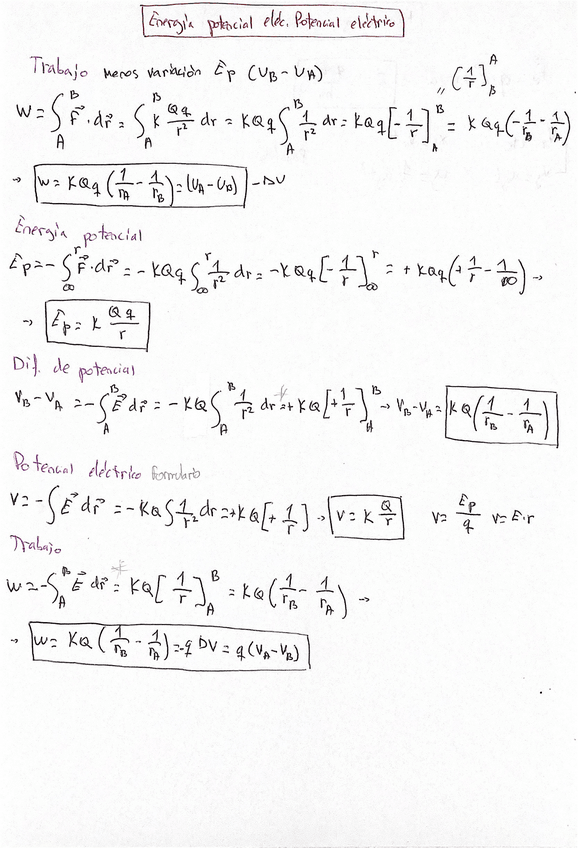 Energía potencial eléc. Potencial eléctrico
Trabajo menos variación Ep (U_B - U_A)
" (1/r]_B^A
W = ∫_A^B F⃗ · dr⃗ = ∫_A^B K Qq/r² dr = KQq ∫_A^B 1/r² dr = KQq [-1/r]_A^B = KQq (-1/r_B - 1/r_A)
→ W = KQq (1/r_A - 1/r_B) = (U_A - U_B) - DU
Energía potencial
Ep = - ∫_∞^r F⃗ · dr⃗ = - KQq ∫_∞^r 1/r² dr = - KQq [-1/r]_∞^r = + KQq (+1/r - 1/∞) →
→ Ep = K Qq/r
Dif. de potencial
V_B - V_A = - ∫_A^B E⃗ dr⃗ = - KQ ∫_A^B 1/r² dr = + KQ [+1/r]_A^B → V_B - V_A = KQ (1/r_B - 1/r_A)
Potencial eléctrico formulario
V = - ∫ E⃗ dr⃗ = - KQ ∫ 1/r² dr = + KQ [+ 1/r] → V = K Q/r V = Ep/q V = E · r
Trabajo
W = - ∫_A^B E⃗ dr⃗ = KQ [1/r]_A^B = KQ (1/r_B - 1/r_A) →
→ W = KQ (1/r_B - 1/r_A) = -q DV = q (V_A - V_B)